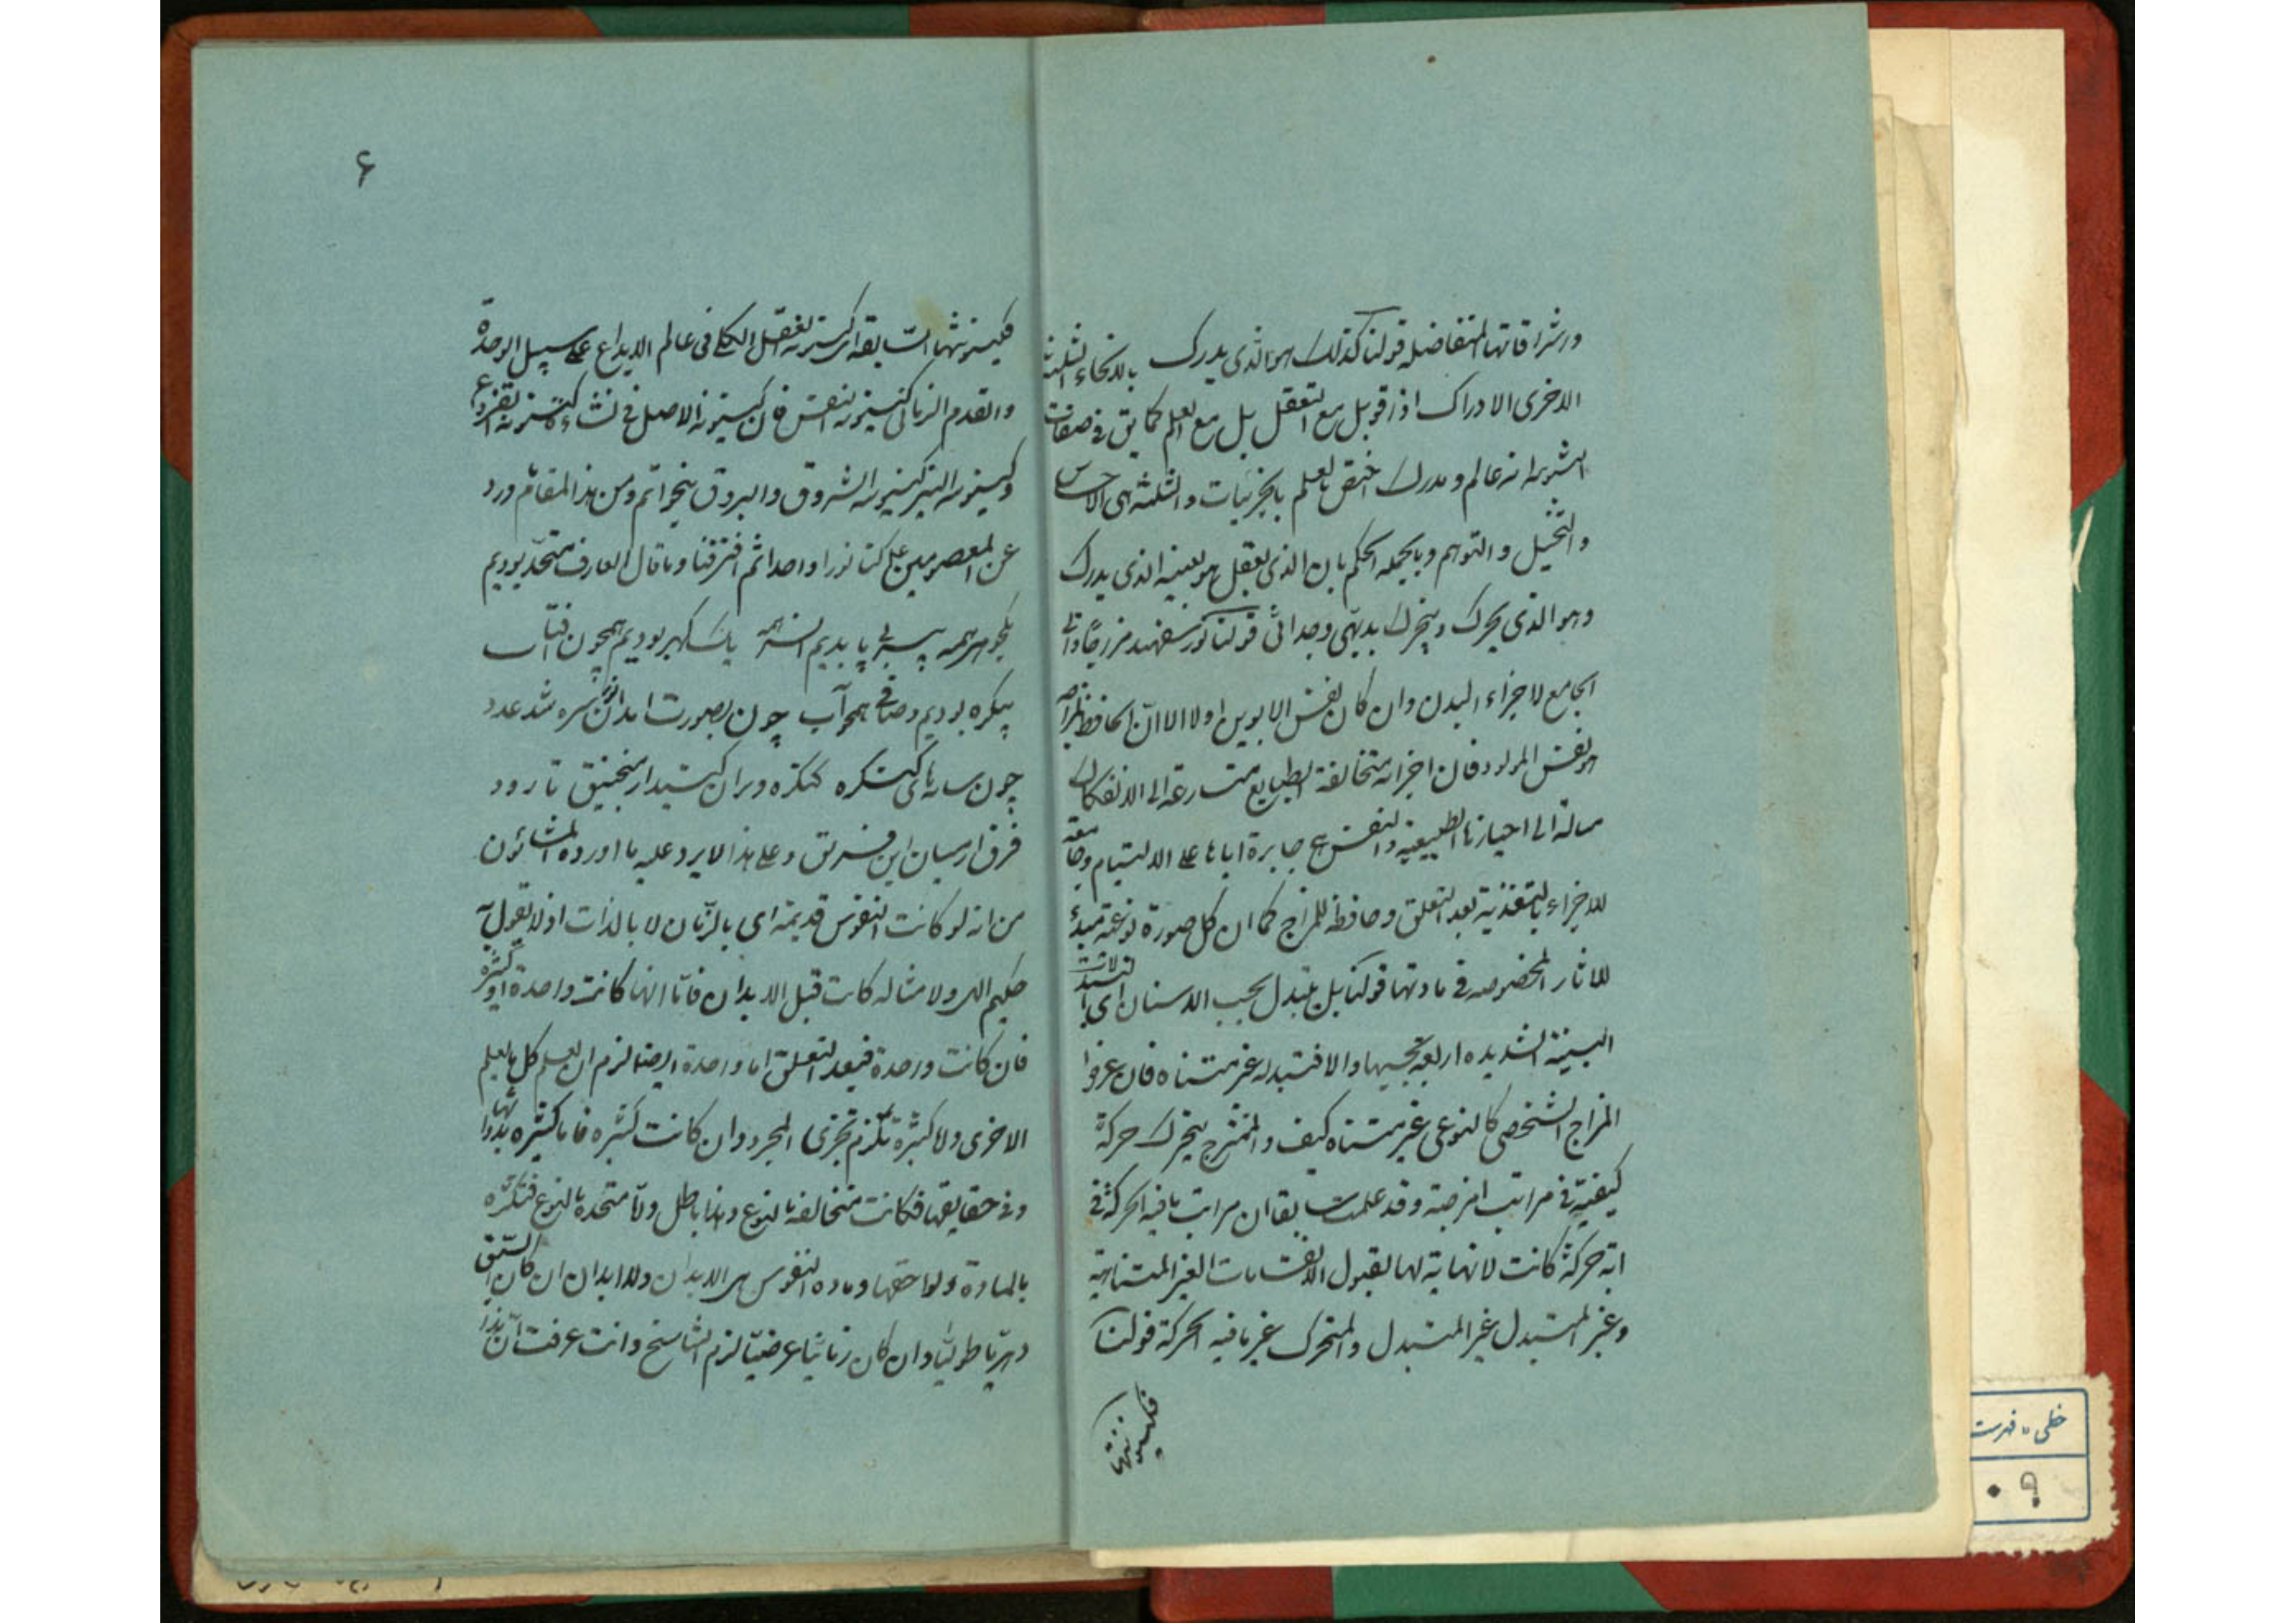 واشراقاتها المتفاضله قولنا كذلك هو الذى يدرك بالانحاء الثلثة
الاخرى الادراك اذا قوبل مع التعقل بل مع العلم كما يق فى صفات
انه عالم ومدرك اختص العلم بالجزئيات والثلثة هى الاحساس
والتخيل والتوهم وبالجمله الحكم بان الذى يعقل هو بعينه الذى يدرك
وهو الذى يحرك ويتحرك بديهى وجدانى قولنا
الجامع لاجزاء البدن وان كان نفس الابوين اولا الا ان الحافظ للمزاج
هو نفس المولود فان اجزائه متخالفة الطبايع متسارعة الى الانفكاك
مياله الى احيازها الطبيعيه والنفس هى جابرة اياها على الالتيام وجامعة
للاجزاء بالتغذيه بعد التعلق وحافظه للمزاج كما ان كل صورة نوعية مبدء
للاثار المخصوصه فى مادتها قولنا بل يتبدل بحسب الاسنان اى التبدلات
البينة الشديده اربعة بحسبها والا فتبدله غير متناه فان عرض
المزاج الشخصى كالنوعى غير متناه كيف والممتزج يتحرك حركة
كيفية فى مراتب امزجته وقد علمت سابقا ان مراتب ما فيه الحركة فى
اية حركة كانت لا نهاية لها لقبول الانقسامات الغير المتناهية
وغير المتبدل غير المتبدل والمتحرك غير ما فيه الحركة قولنا
فكينونتها
۶
فكينونتها السابقة اى كينونة العقل الكلى فى عالم الابداع على سبيل الوحدة
والقدم الزمانى كينونة النفس فان كينونة الاصل فى نشاة كينونة الفروع
وكينونة النير كينونة الشروق والبروق بنحو اتم ومن هذا المقام ورد
عن المعصومين ع كنا نورا واحدا ثم افترقنا وما قال العارف متحد بوديم
يكجوهر همه بى سر بى پا بديم آن سر همه يك گهر بوديم همچون آفتاب
بيگره بوديم وصافى همچو آب چون بصورت آمد آن نور سره شد عدد
چون سايه‌هاى كنگره كنگره ويران كنيد از منجنيق تا رود
فرق از ميان اين فريق وعلى هذا لا يرد عليه ما اورده المشاؤن
من انه لو كانت النفوس قديمة اى بالزمان لا بالذات اذ لا يقول به
حكيم الهى ولا متاله كانت قبل الابدان فاما انها كانت واحدة او كثيرة
فان كانت واحدة فبعد التعلق اما واحدة ايضا لزم ان يعلم كل بعلم
الاخرى واما كثيرة تلزم تجزى المجرد وان كانت كثيرة فاما كثيره بذواتها
وفى حقايقها فكانت متخالفة بالنوع وهذا باطل واما متحدة بالنوع فتكثره
بالمادة ولواحقها ومادة النفوس هى الابدان ولا ابدان ان كان السبق
دهريا طوليا وان كان زمانيا عرضيا لزم التناسخ وانت عرفت ان
خطى » فهرست
۰۹